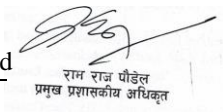 d
राम राज पौडेल
प्रमुख प्रशासकीय अधिकृत